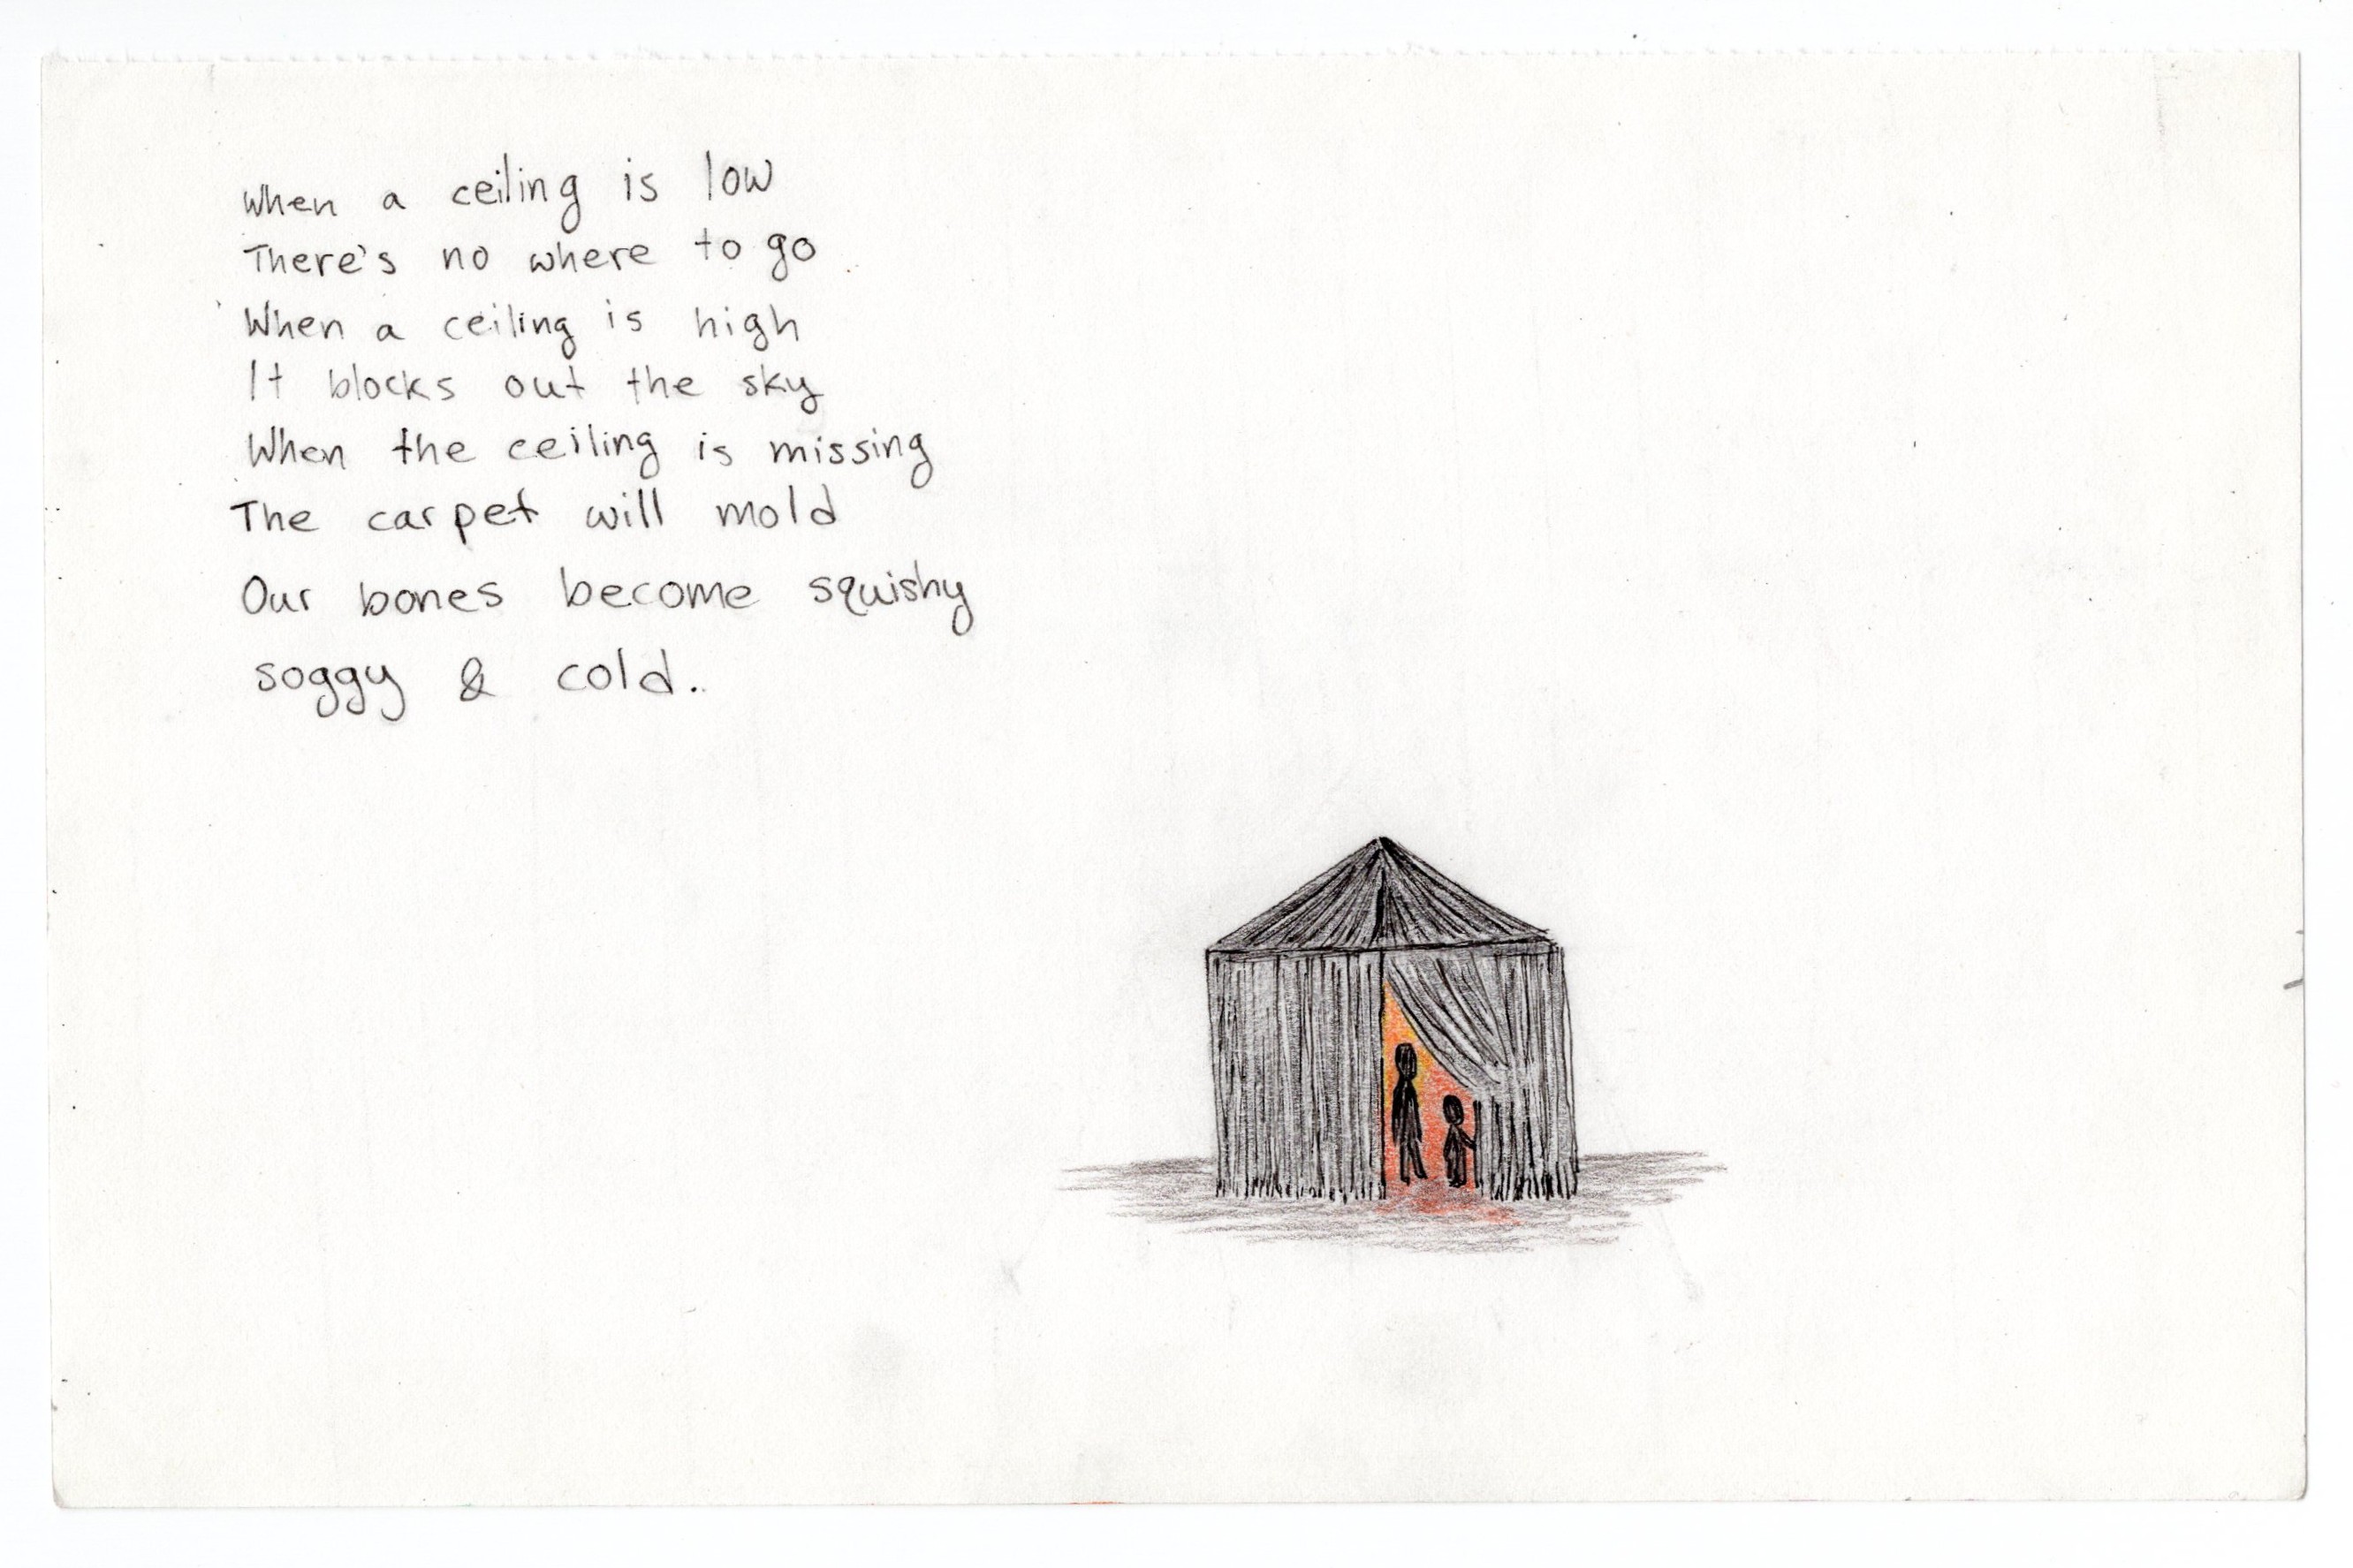 When a ceiling is low
There's no where to go
When a ceiling is high
It blocks out the sky
When the ceiling is missing
The carpet will mold
Our bones become squishy
soggy & cold.